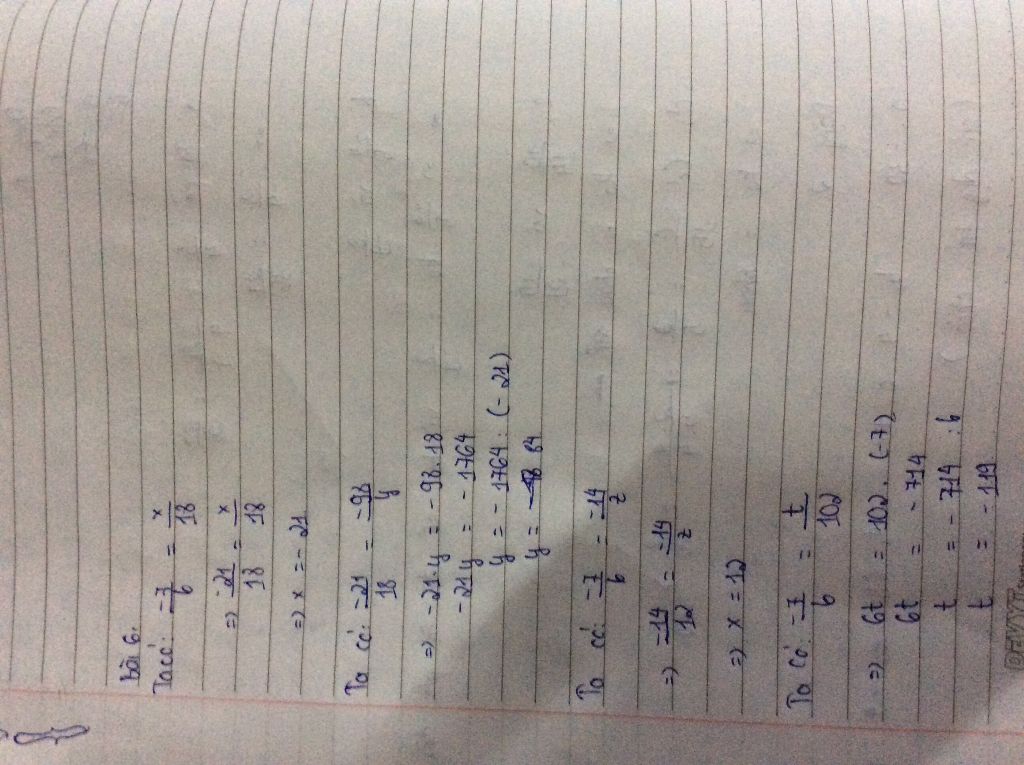 Bài 6.
Ta có: -7/6 = x/18
=> -21/18 = x/18
=> x = -21
Ta có: -21/18 = -98/y
=> -21.y = -98.18
-21y = -1764
y = -1764 : (-21)
y = 84
Ta có: -7/6 = -14/z
=> -14/12 = -14/z
=> x = 12
Ta có: -7/6 = t/102
=> 6t = 102.(-7)
6t = -714
t = -714 : 6
t = -119